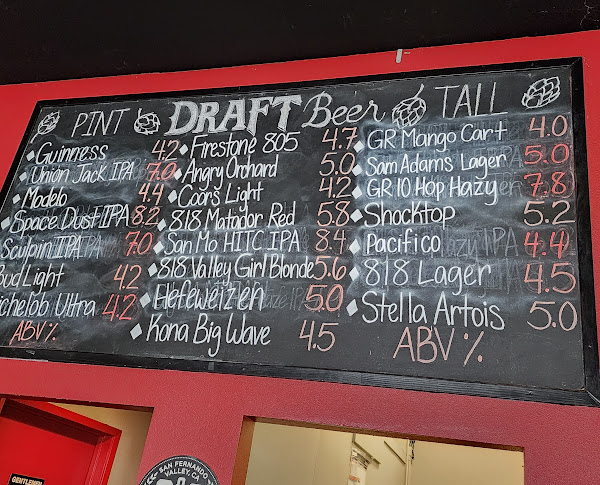 PINT DRAFT Beer TALL
Guinness 4.2
Union Jack IPA 7.0
Modelo 4.4
Space Dust IPA 8.2
Sculpin IPA 7.0
Bud Light 4.2
Michelob Ultra 4.2
ABV %
Firestone 805 4.7
Angry Orchard 5.0
Coors Light 4.2
818 Matador Red 5.8
San Mo HITC IPA 8.4
818 Valley Girl Blonde 5.6
Hefeweizen 5.0
Kona Big Wave 4.5
GR Mango Cart 4.0
Sam Adams Lager 5.0
GR 10 Hop Hazy 7.8
Shocktop 5.2
Pacifico 4.4
818 Lager 4.5
Stella Artois 5.0
ABV %
GENTLEMEN
SAN FERNANDO
VALLEY, CA